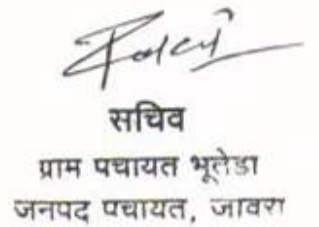 सचिव
प्राम पचायत भूतेडा
जनपद पचायत, जावरा